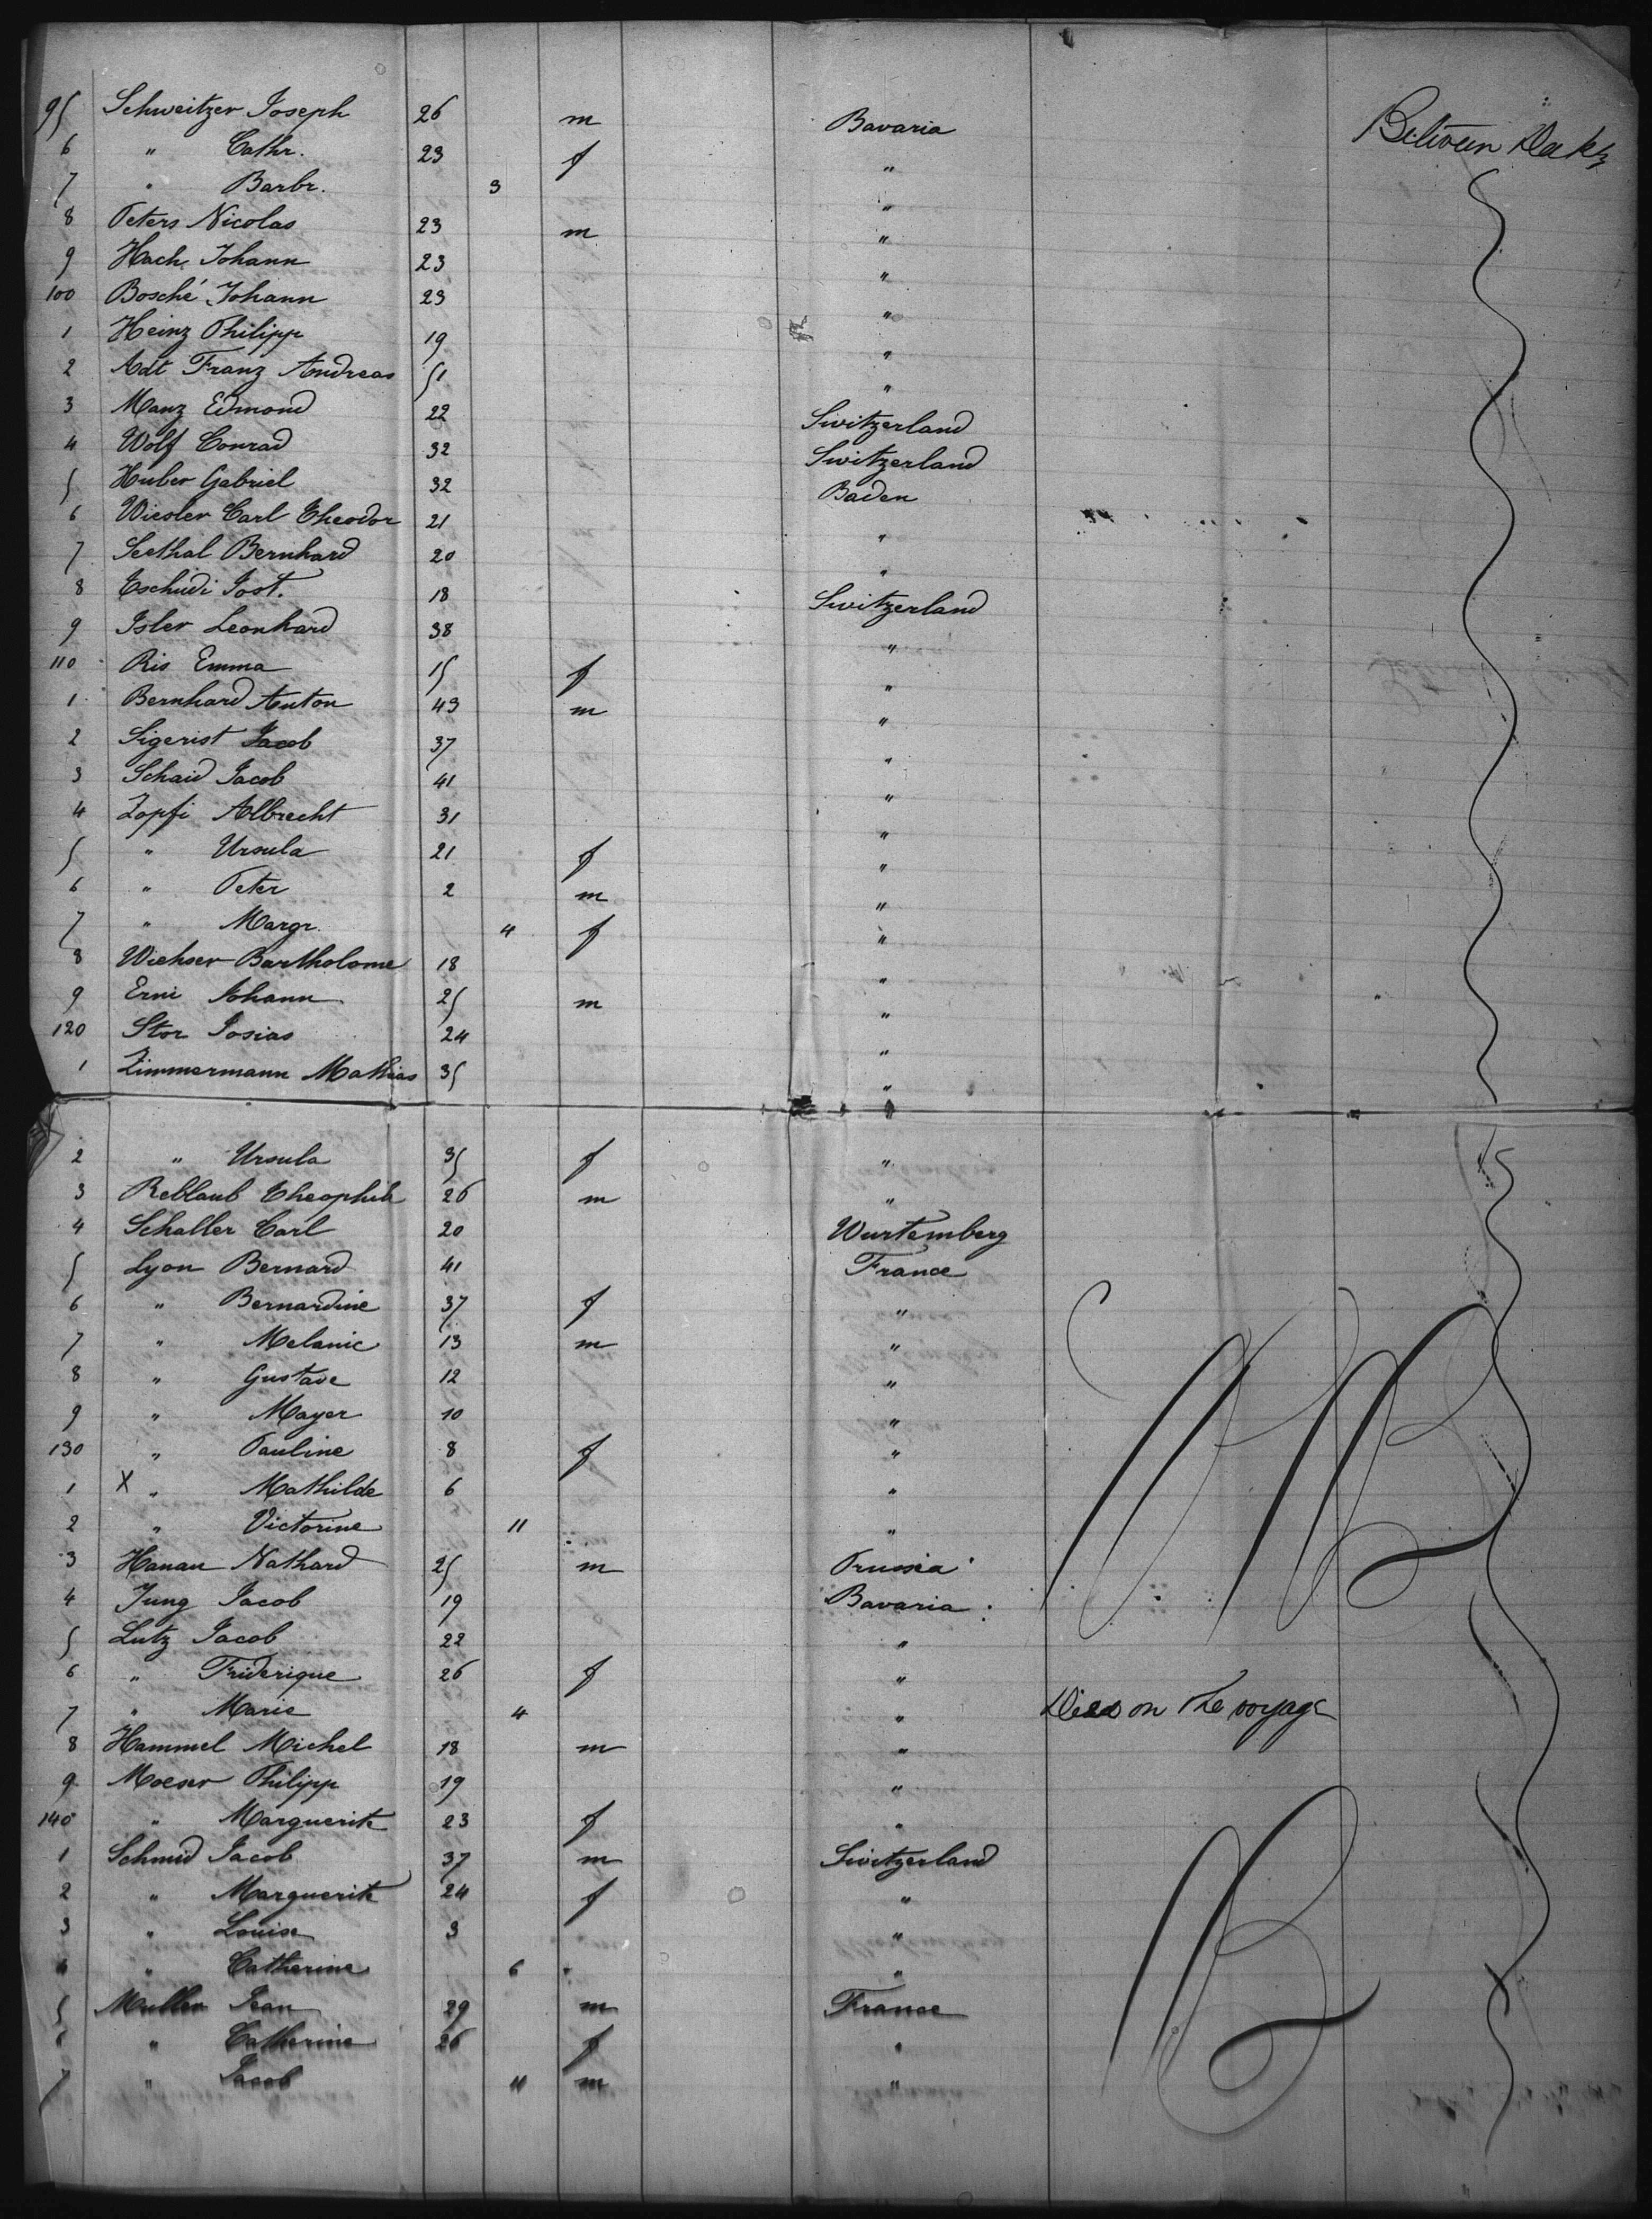 95 Schweitzer Joseph 26 m Bavaria Between Decks
6 " Cathr. 23 f "
7 " Barbr. 3 "
8 Peters Nicolas 23 m "
9 Hach Johann 23 "
100 Bosché Johann 23 "
1 Heinz Philipp 19 "
2 Adt Franz Andreas 51 "
3 Manz Edmond 22 Switzerland
4 Wolf Conrad 32 Switzerland
5 Huber Gabriel 32 Baden
6 Wiesler Carl Theodor 21 "
7 Seethal Bernhard 20 "
8 Tschudi Jost. 18 Switzerland
9 Isler Leonhard 38 "
110 Ris Emma 15 f "
1 Bernhard Anton 43 m "
2 Sigerist Jacob 37 "
3 Schaid Jacob 41 "
4 Zopfi Albrecht 31 "
5 " Ursula 21 f "
6 " Peter 2 m "
7 " Margr. 4 f "
8 Wichser Bartholome 18 "
9 Erni Johann 25 m "
120 Stor Josias 24 "
1 Zimmermann Mathias 35 "
2 " Ursula 35 f "
3 Reblaub Theophile 26 m "
4 Schaller Carl 20 Wurtemberg
5 Lyon Bernard 41 France
6 " Bernardine 37 f "
7 " Melanie 13 m "
8 " Gustave 12 "
9 " Mayer 10 "
130 " Pauline 8 f "
1 X " Mathilde 6 "
2 " Victorine 11 "
3 Hanau Nathard 25 m Prussia
4 Jung Jacob 19 Bavaria
5 Lutz Jacob 22 "
6 " Friderique 26 f "
7 " Marie 4 " Died on the voyage
8 Hammel Michel 18 m "
9 Moeser Philipp 19 "
140 " Marguerite 23 f "
1 Schmid Jacob 37 m Switzerland
2 " Marguerite 24 f "
3 " Louise 3 "
4 " Catherine 6 "
5 Muller Jean 29 m France
6 " Catherine 26 f "
7 " Jacob 11 m "